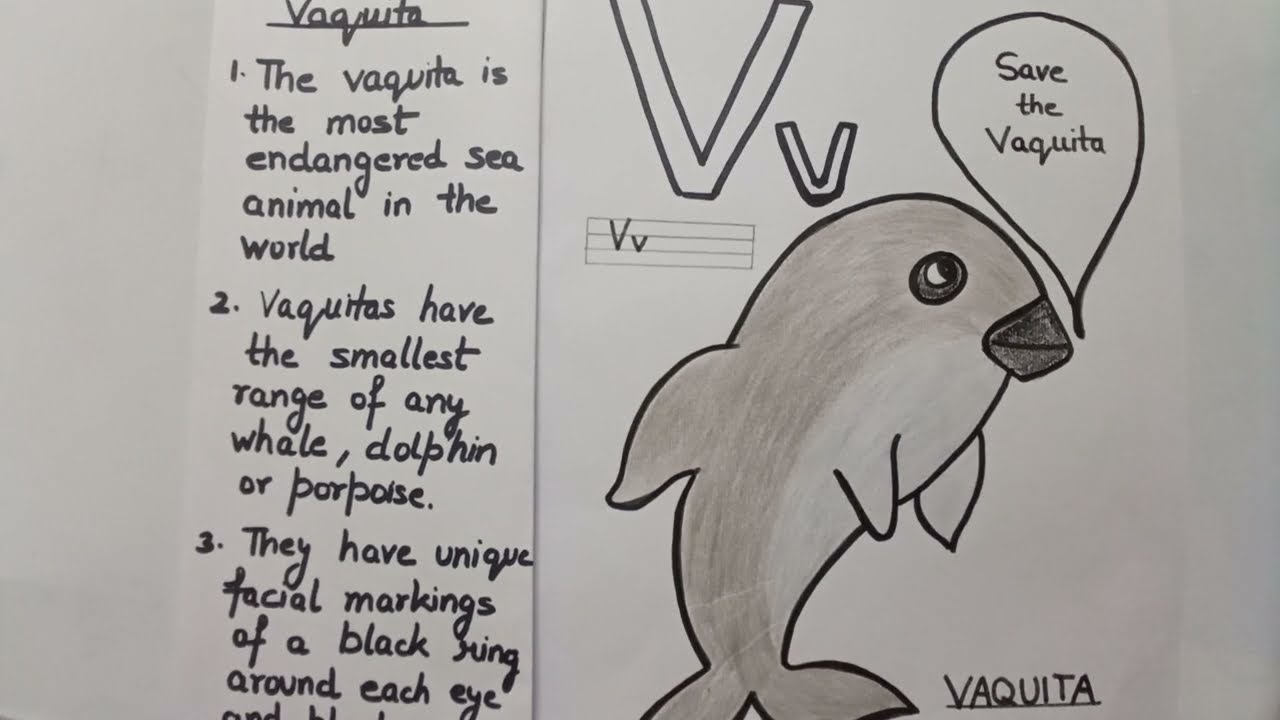 Vaquita
1. The vaquita is
the most
endangered sea
animal in the
world
2. Vaquitas have
the smallest
range of any
whale, dolphin
or porpoise.
3. They have unique
facial markings
of a black ring
around each eye
and
V v
Vv
Save
the
Vaquita
VAQUITA